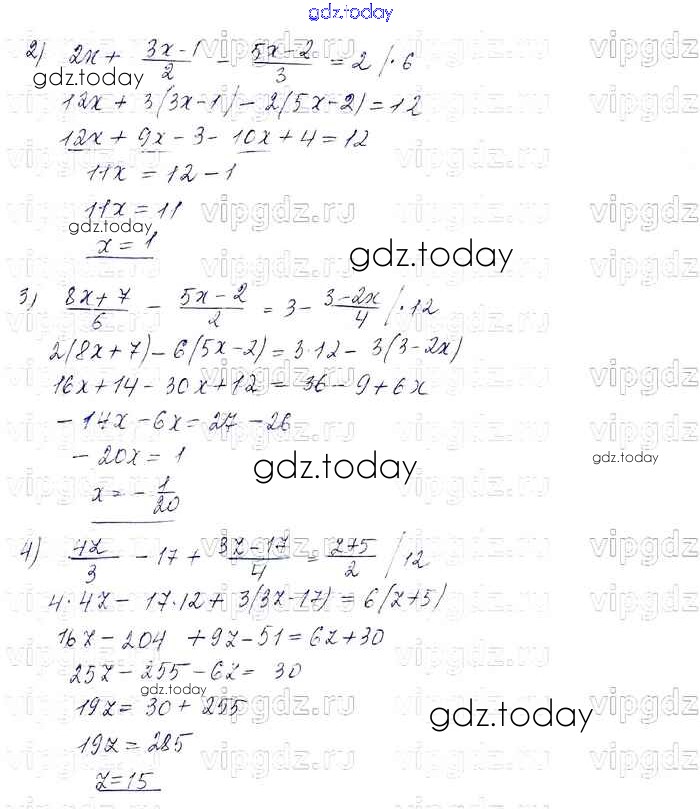 gdz.today
2) 2x + (3x-1)/2 - (5x-2)/3 = 2 /·6
gdz.today
12x + 3(3x-1) - 2(5x-2) = 12
12x + 9x - 3 - 10x + 4 = 12
11x = 12 - 1
11x = 11
gdz.today
x = 1
gdz.today
3) (8x+7)/6 - (5x-2)/2 = 3 - (3-2x)/4 /·12
2(8x+7) - 6(5x-2) = 3·12 - 3(3-2x)
16x + 14 - 30x + 12 = 36 - 9 + 6x
- 14x - 6x = 27 - 26
- 20x = 1
gdz.today
gdz.today
x = - 1/20
4) 4z/3 - 17 + (3z-17)/4 = (z+5)/2 /12
4·4z - 17·12 + 3(3z-17) = 6(z+5)
16z - 204 + 9z - 51 = 6z + 30
25z - 255 - 6z = 30
gdz.today
19z = 30 + 255
gdz.today
19z = 285
z = 15
vipgdz.ru